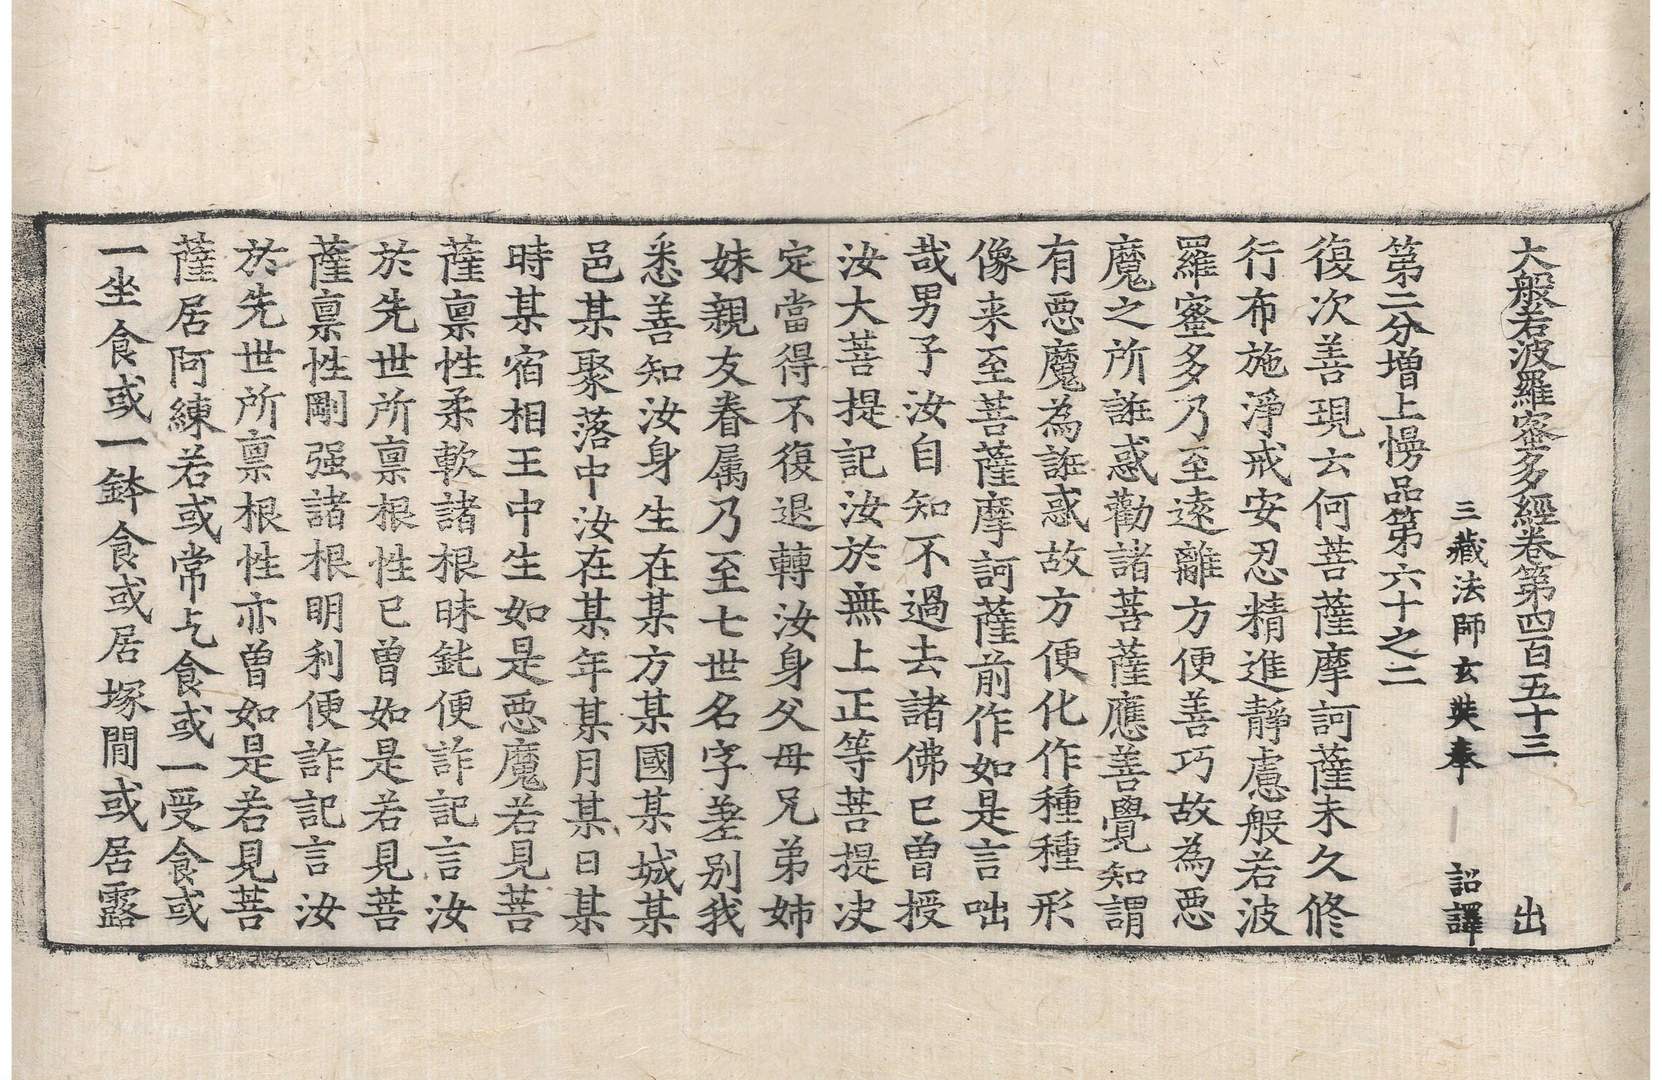 大般若波羅蜜多經卷第四百五十三　出
三藏法師玄奘奉　詔譯
第二分增上慢品第六十之二
復次善現云何菩薩摩訶薩未久修
行布施淨戒安忍精進靜慮般若波
羅蜜多乃至遠離方便善巧故為惡
魔之所誑惑勸諸菩薩應善覺知謂
有惡魔為誑惑故方便化作種種形
像来至菩薩摩訶薩前作如是言咄
哉男子汝自知不過去諸佛已曾授
汝大菩提記汝於無上正等菩提决
定當得不復退轉汝身父母兄弟姉
妹親友眷属乃至七世名字差别我
悉善知汝身生在某方某國某城某
邑某聚落中汝在某年某月某日某
時某宿相王中生如是惡魔若見菩
薩禀性柔軟諸根昧鈍便詐記言汝
於先世所禀根性已曾如是若見菩
薩禀性剛强諸根明利便詐記言汝
於先世所禀根性亦曾如是若見菩
薩居阿練若或常乞食或一受食或
一坐食或一鉢食或居塚間或居露